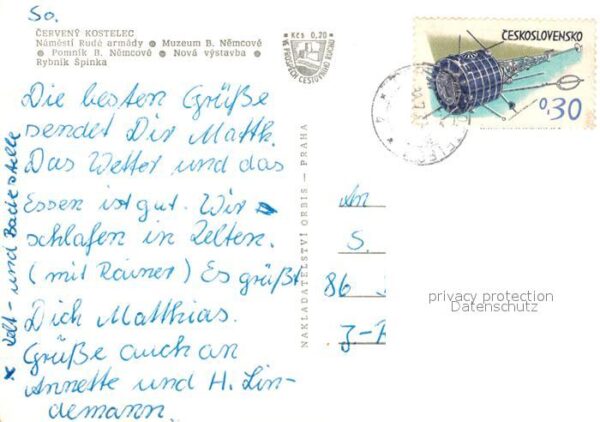 So.
ČERVENÝ KOSTELEC
Náměstí Rudé armády ● Muzeum B. Němcové
● Pomník B. Němcové ● Nová výstavba ●
Rybník Špinka
Kčs 0,20
VE PROSPĚCH CESTOVNÍHO RUCHU
ČESKOSLOVENSKO
0,30
Die besten Grüße
sendet Dir Matth.
Das Wetter und das
Essen ist gut. Wir
schlafen in Zelten.
(mit Rainer) Es grüßt
Dich Matthias.
Grüße auch an
Annette und H. Lin-
demann.
x Zelt- und Badestelle
NAKLADATELSTVÍ ORBIS — PRAHA
An
S.
86
privacy protection
Datenschutz